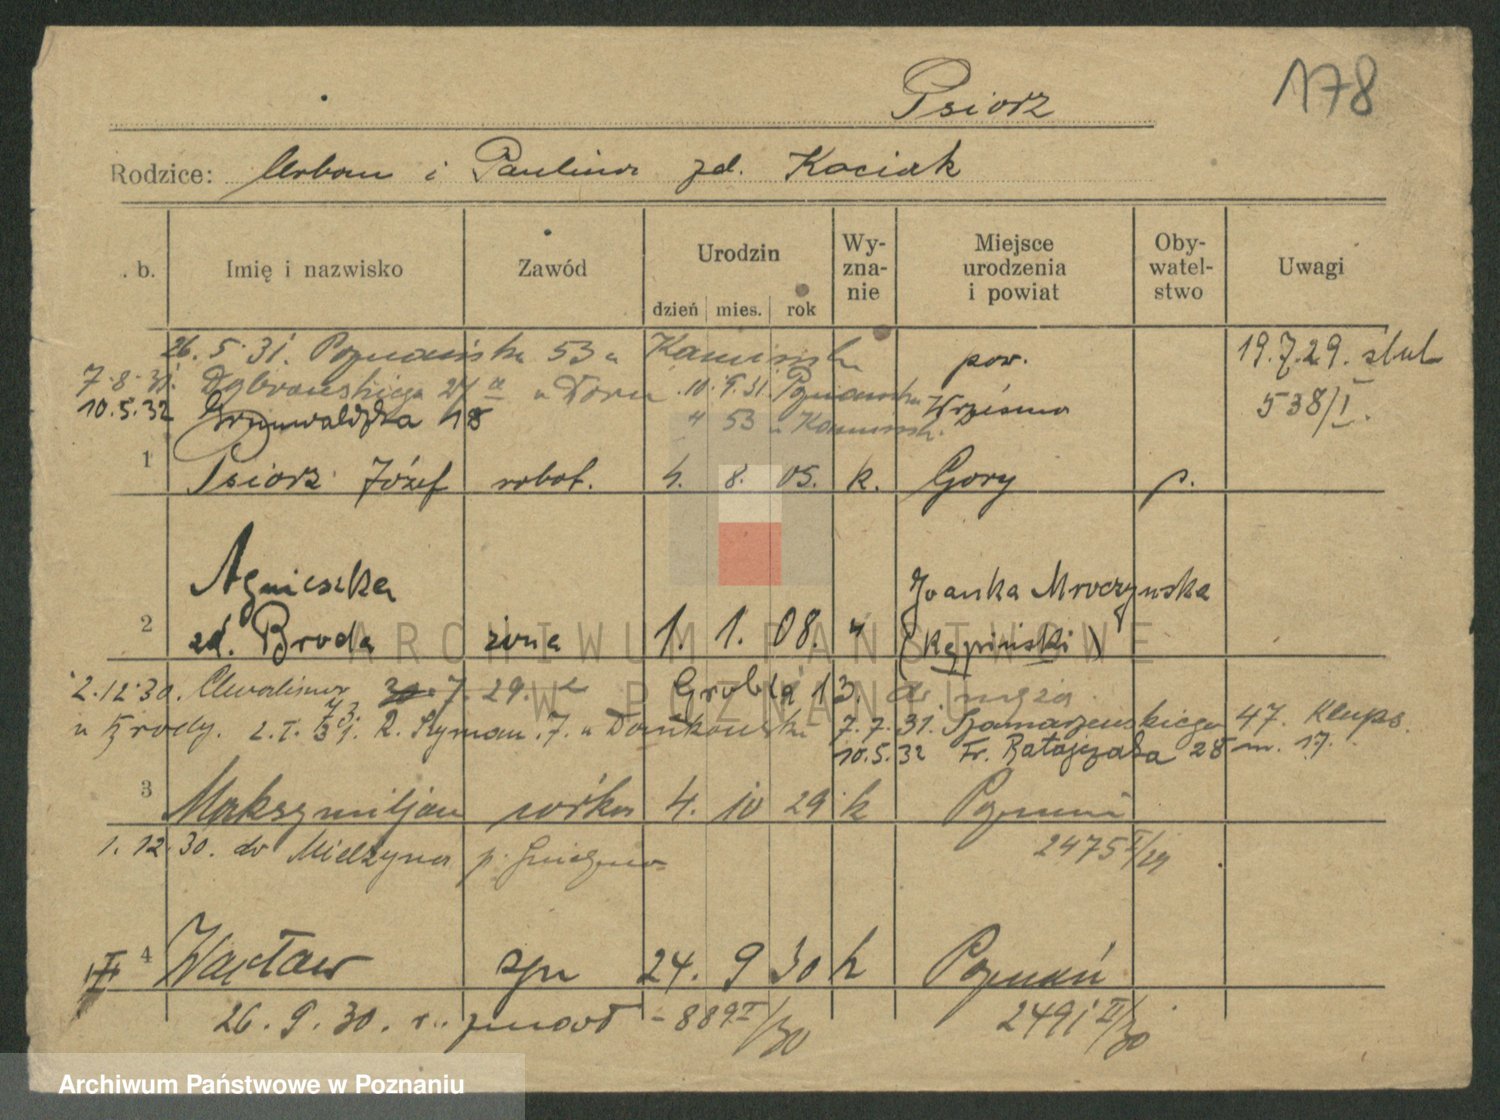 178
Psiorz
Rodzice: Urban i Paulina zd. Kociak
. b. Imię i nazwisko Zawód Urodzin dzień mies. rok Wy-zna-nie Miejsce urodzenia i powiat Oby-watel-stwo Uwagi
26. 5. 31. Poznańska 53 u Kamińsk
19.7.29. slub
7.8.31. Dąbrowskiego 27 a u Dorn 10.9.31. Poznańska
pow.
538/I.
10.5.32 Grunwaldzka 18 53 u Kamińsk.
Wrześnio
1 Psiorz Józef robot. 4. 8. 05. k. Gory p.
Agnieszka
Joanka Mroczynska
2 zd. Broda żona 1. 1. 08. " (Kępiński)
2.12.30. 7. 29. Grobla 13. do męża
u Brody. 2.I.31. R. Szyman. 7. u Dankowski 7.7.31. Szamarzewskiego 47. Klups.
10.5.32 Fr. Ratajczaka 28 m. 17.
3 Maksymiljan 4. 10 29 k Poznań
1. 12. 30. do Mielżyna p. Gniezno
2475 I/29
4 Wacław syn 24. 9 30 k Poznań
26. 9. 30. zmarł - 889 II/30 2491 II/30
ARCHIWUM PAŃSTWOWE
W POZNANIU
Archiwum Państwowe w Poznaniu